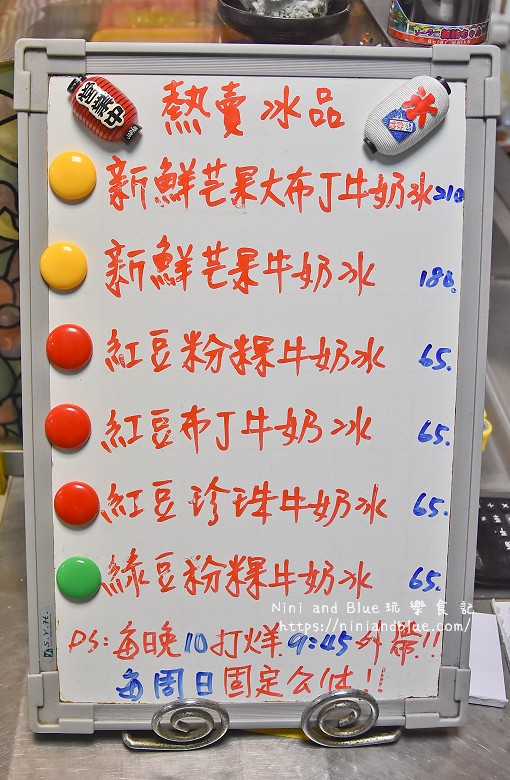 熱賣冰品
新鮮芒果大布丁牛奶冰210
新鮮芒果牛奶冰 180.
紅豆粉粿牛奶冰 65.
紅豆布丁牛奶冰 65.
紅豆珍珠牛奶冰 65.
綠豆粉粿牛奶冰 65.
Nini and Blue玩樂食記
https://niniandblue.com/
PS:每晚10打烊 9:45外帶!!
每周日固定公休!!
S.Y.H.
冰